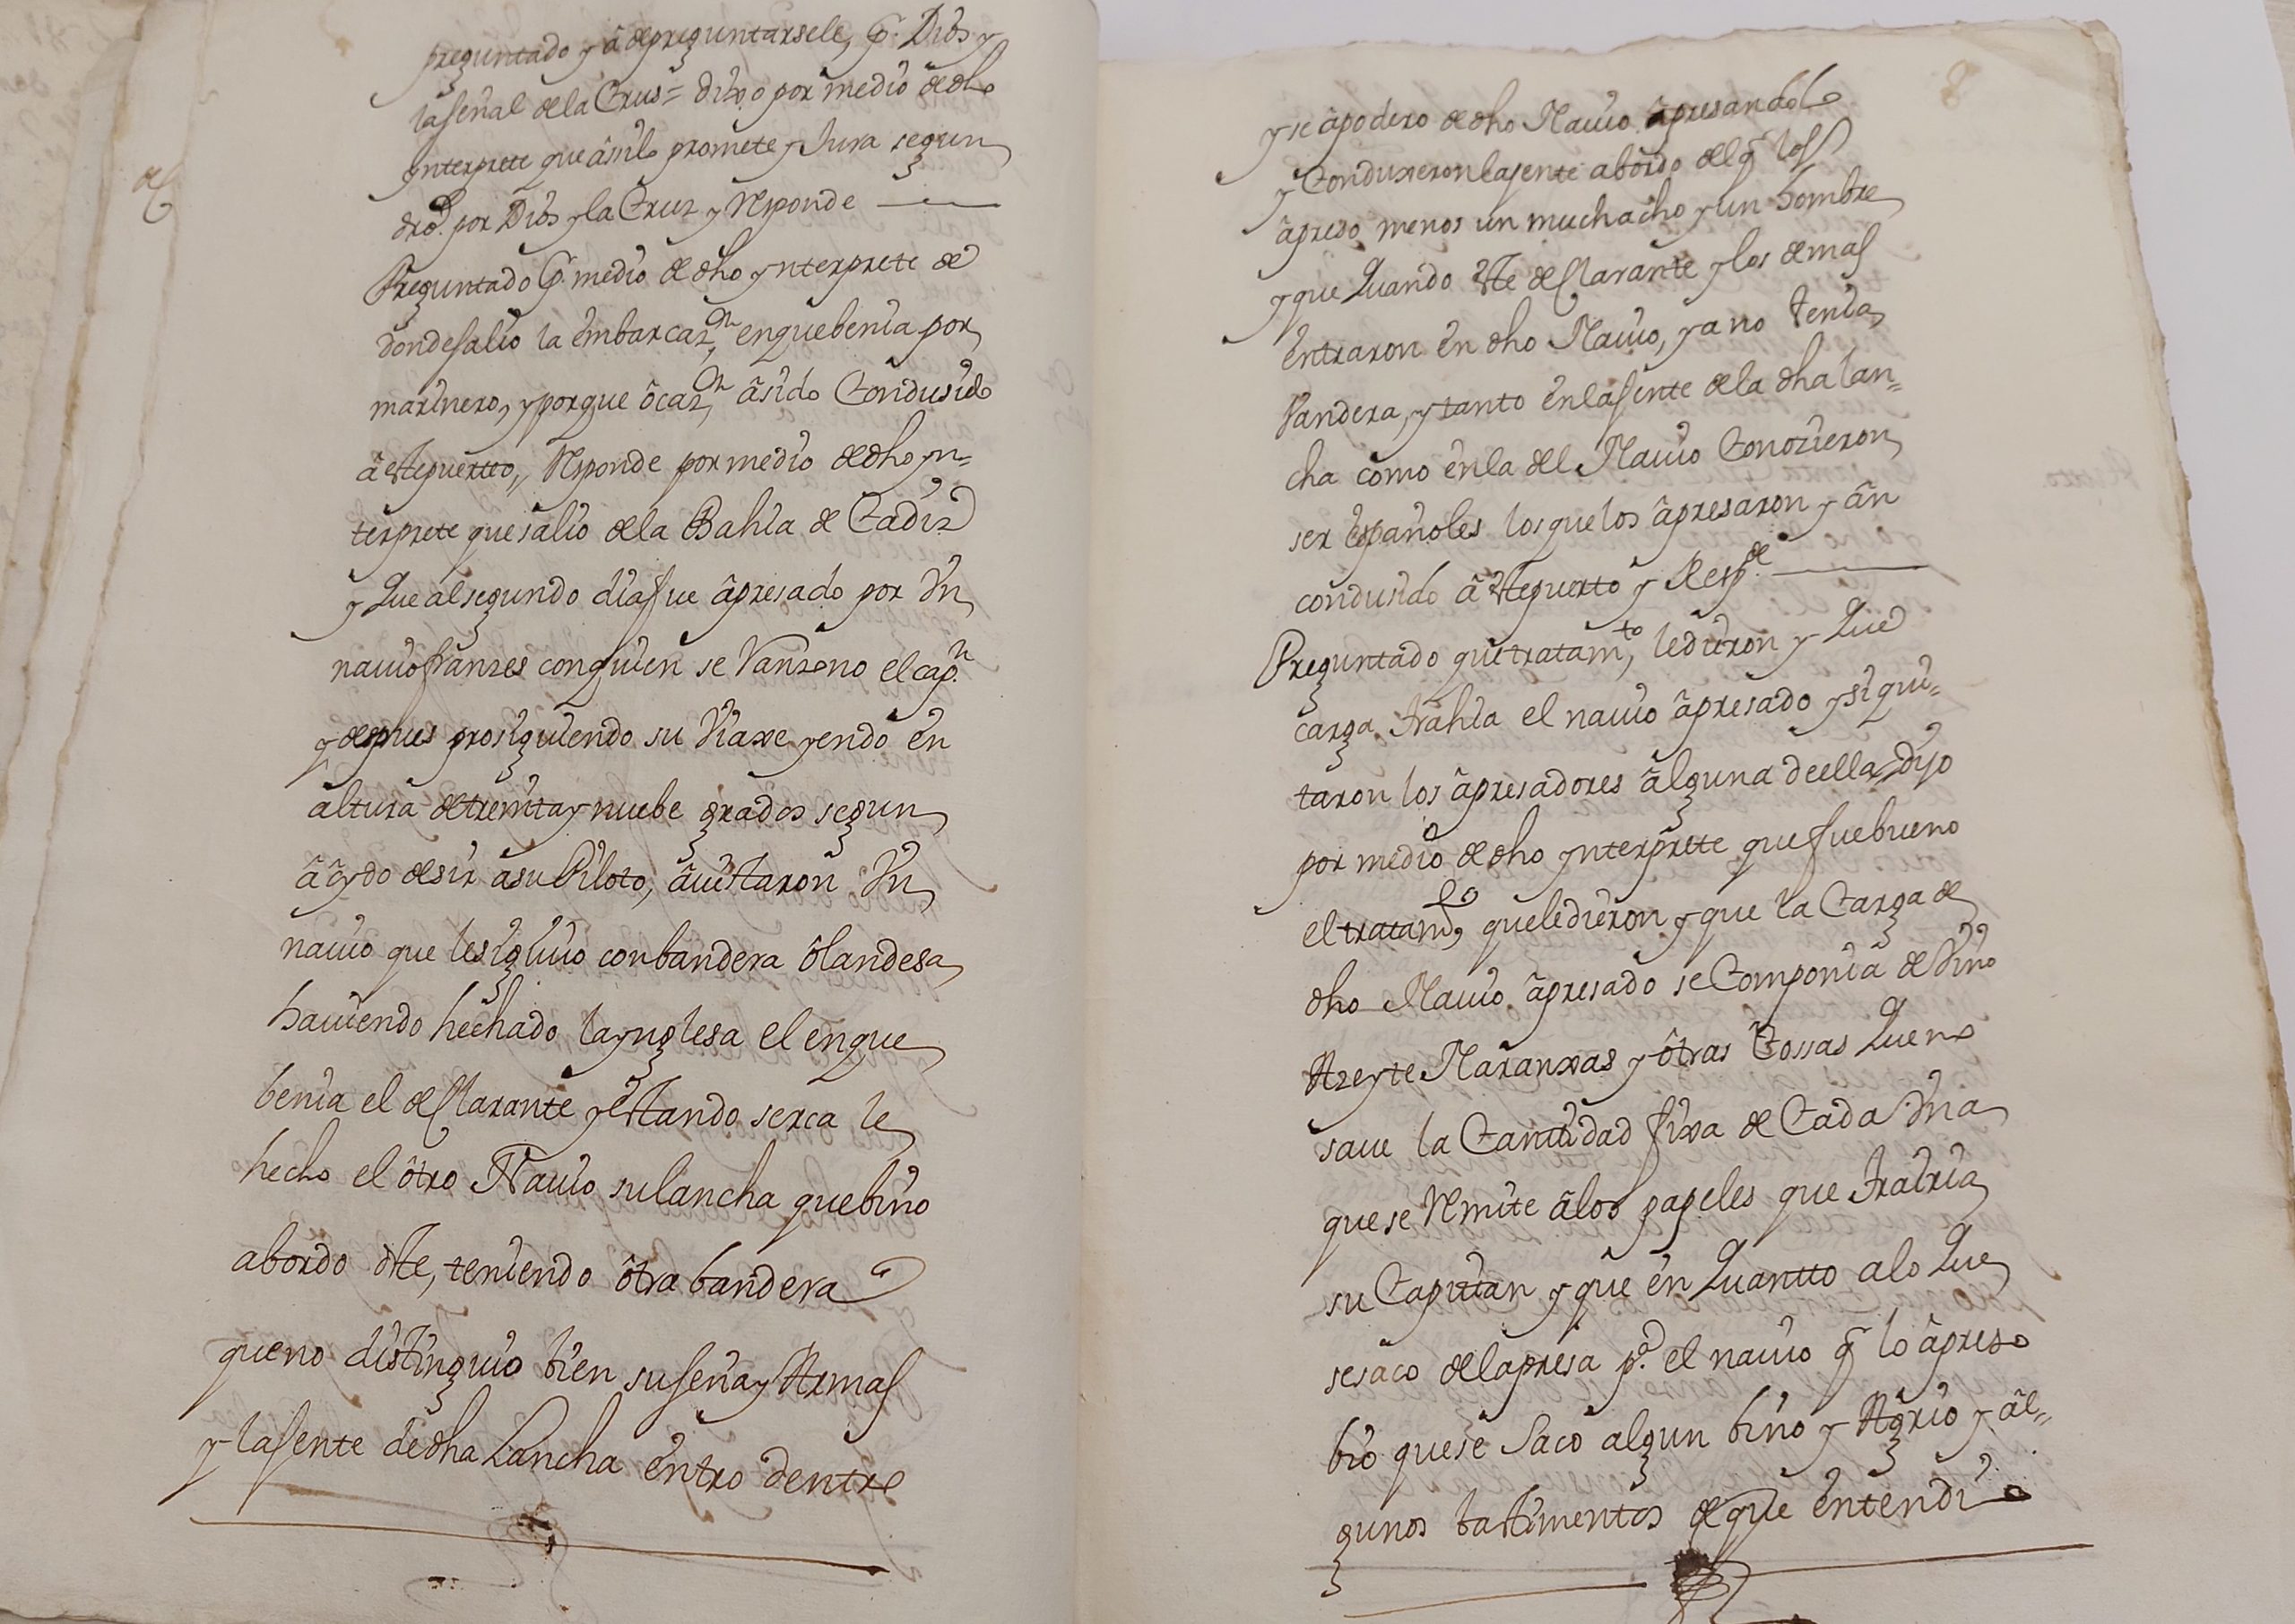 preguntado y à de preguntarsele, p.r Dios y
la señal de la Crus= dixo por medio de dho
ynterprete que âsilo promete y Jura segun
dro. por Dios y la Cruz y Responde
Preguntado p.r medio de dho ynterprete de
donde salio la embarcaz.on en que benia por
marinero, y porque ôcaz.on âsido Condusido
â este puertto, Responde por medio de dho yn=
terprete que salio de la Bahia de Cadiz
y Que al segundo dia fue âpresado por Vn
nauio franses con quien se Ranzono el cap.n
y despues prosiguiendo su Viaxe yendo en
altura de treinta y nuebe grados segun
â oydo desir a su Piloto, âuistaron Vn
nauio que les siguio con bandera ôlandesa
hauiendo hechado la ynglesa el en que
benia el declarante y estando serca le
hecho el ôtro Nauio su lancha que bino
abordo dste, teniendo ôtra bandera
que no distinguio bien su seña y Armas
y la Jente de dha Lancha entro dentro
y se âpodero de dho Nauio âpresandolo
y Conduxeron la jente abordo del q.e los
âpreso menos un muchacho y un hombre
y que Quando este declarante y los demas
entraron en dho Nauio, ya no tenia
Vandera, y tanto en la Jente de la dha lan=
cha como en la del Nauio Conozieron
ser españoles los que los âpresaron y ân
condusido â este puerto y Resp.de
Preguntado que tratam.to le dieron y Que
carga trahia el nauio âpresado y si qui=
taron los âpresadores âlguna de ella Dijo
por medio de dho ynterprete que fue bueno
el tratam.to que le dieron y que la Carga de
dho Nauio âpresado se Componia de Vino
Azeyte Naranxas y ôtras Cossas Que no
saue la Cantidad fixa de Cada Vna
que se Remite âlos papeles que trairia
su Capitan y que en Quantto alo Que
se saco de la presa p.a el nauio q.e lo âpreso
bio que se Saco algun bino y Agrio y âl=
gunos bastimentos de que entendio